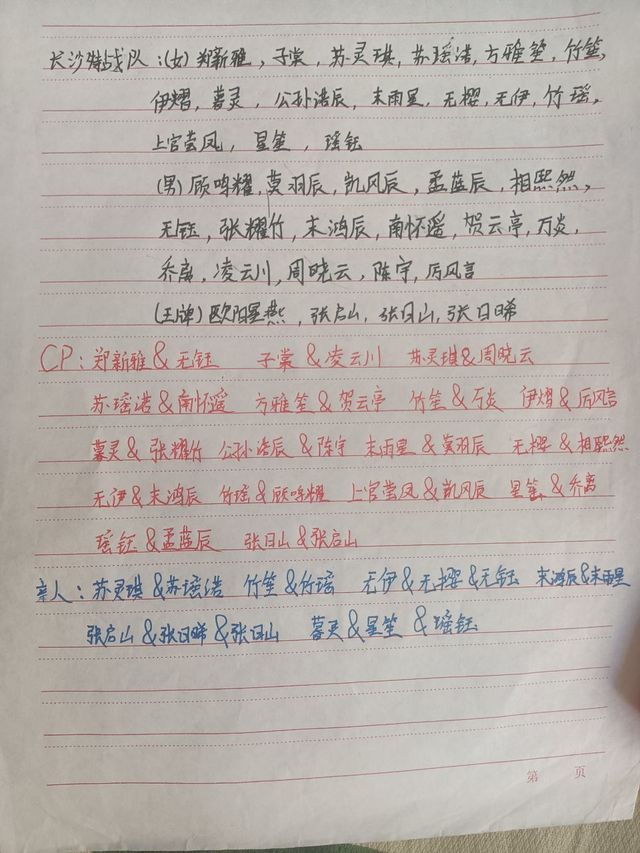 长沙特战队：(女) 郑新雅，子棠，苏灵琪，苏瑶浩，方雅笙，竹笙，
伊熠，暮灵，公孙浩辰，末雨星，无樱，无伊，竹瑶，
上官莹凤，星笙，瑶钰
(男) 顾鸣耀，莫羽辰，凯风辰，孟蓝辰，相熙然，
无钰，张耀竹，末鸿辰，南怀遥，贺云亭，万炎，
乔离，凌云川，周晓云，陈宇，厉风言
(王牌) 欧阳星燕，张启山，张日山，张日晞
CP：郑新雅&无钰 子棠&凌云川 苏灵琪&周晓云
苏瑶浩&南怀遥 方雅笙&贺云亭 竹笙&万炎 伊熠&厉风言
暮灵&张耀竹 公孙浩辰&陈宇 末雨星&莫羽辰 无樱&相熙然
无伊&末鸿辰 竹瑶&顾鸣耀 上官莹凤&凯风辰 星笙&乔离
瑶钰&孟蓝辰 张日山&张启山
亲人：苏灵琪&苏瑶浩 竹笙&竹瑶 无伊&无樱&无钰 末鸿辰&末雨星
张启山&张日晞&张日山 暮灵&星笙&瑶钰
第 页